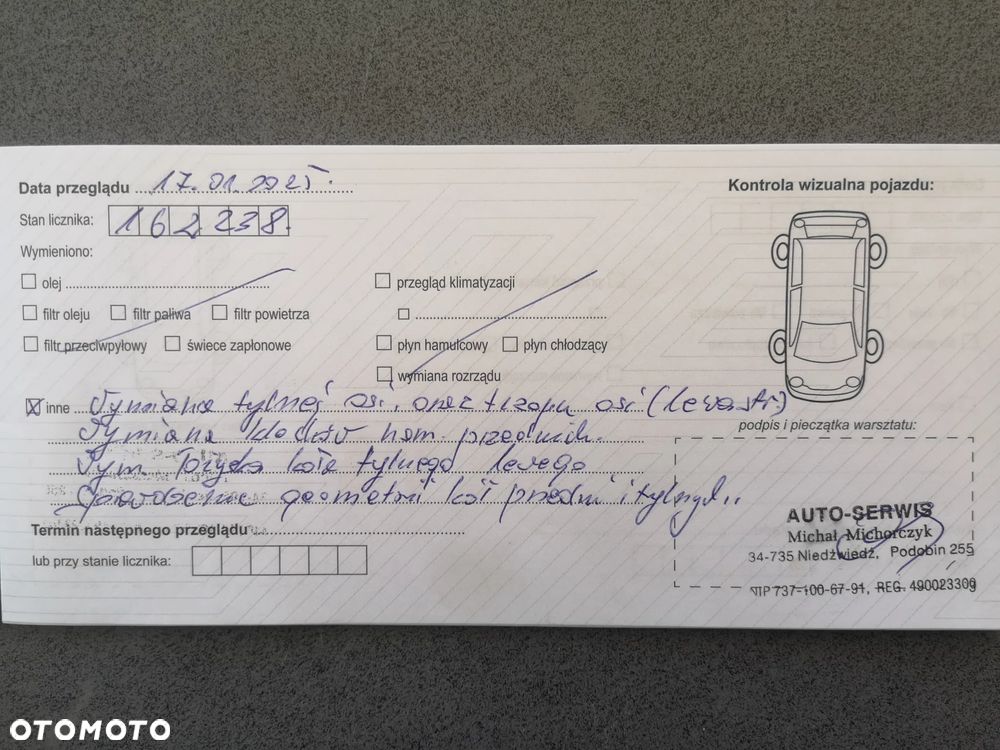 Data przeglądu 17.01.2025.
Kontrola wizualna pojazdu:
Stan licznika: 162238
Wymieniono:
olej
przegląd klimatyzacji
filtr oleju filtr paliwa filtr powietrza
filtr przeciwpyłowy świece zapłonowe
płyn hamulcowy płyn chłodzący
wymiana rozrządu
inne Wymiana tylnej osi, oraz czopu osi (lewa str.)
Wymiana klocków ham. przednich.
Wym. łożyska koła tylnego lewego
Sprawdzenie geometrii kół przedni i tylnych..
podpis i pieczątka warsztatu:
AUTO-SERWIS
Michał Michorczyk
34-735 Niedźwiedź, Podobin 255
NIP 737-100-67-91, REG. 490023309
Termin następnego przeglądu
lub przy stanie licznika:
OTOMOTO